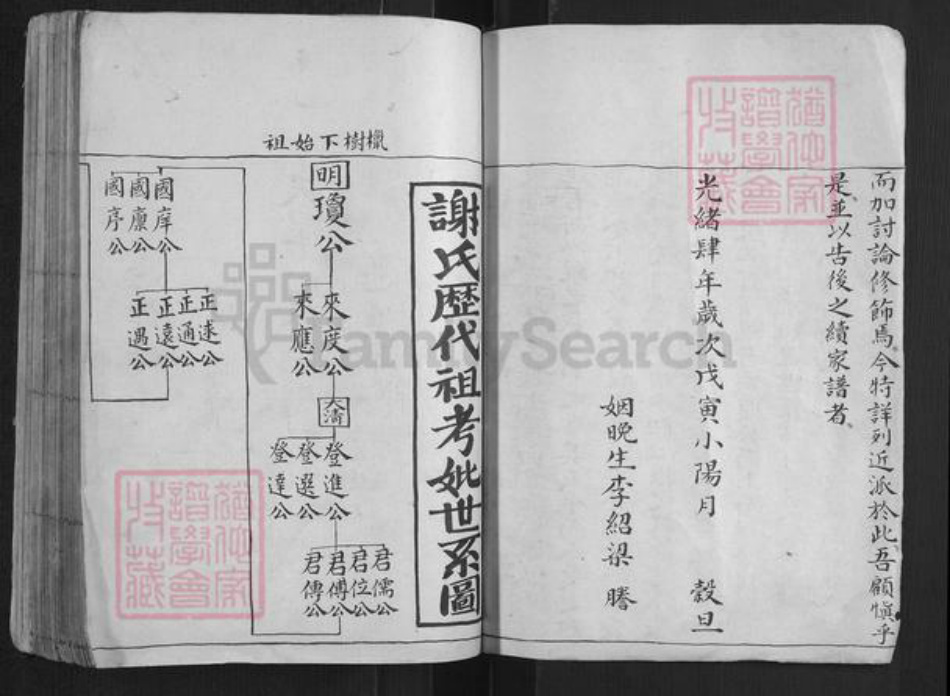 而加討論修飾焉今特詳列近派於此吾願慎乎
是並以告後之續家譜者
光緒肆年歲次戊寅小陽月 穀旦
姻晚生李紹梁 謄
謝氏歷代祖考妣世系圖
樹下始祖
明
瓊公
來度公
來應公
大清
登進公
登選公
登達公
君儒公
君位公
君傅公
君傳公
國庠公
國廩公
國序公
正逑公
正通公
正遠公
正遇公
譜學會
收藏
譜學會
收藏
FamilySearch